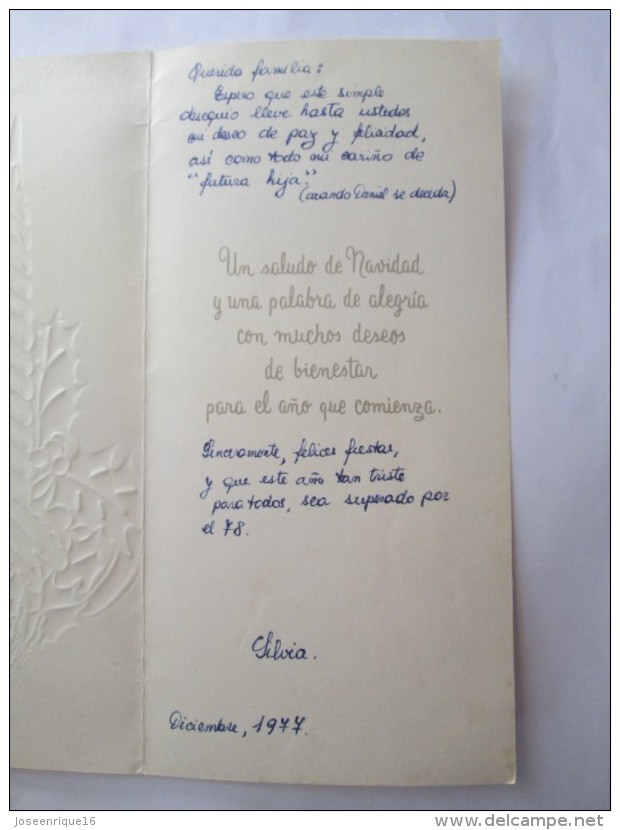 Querida familia:
Espero que este simple
obsequio lleve hasta ustedes
mi deseo de paz y felicidad,
así como todo mi cariño de
"futura hija."
(cuando Daniel se decida)
Un saludo de Navidad
y una palabra de alegría
con muchos deseos
de bienestar
para el año que comienza.
Sinceramente, felices fiestas,
y que este año tan triste
para todos, sea superado por
el 78.
Silvia.
Diciembre, 1977.
Joseenrique16
www.delcampe.net